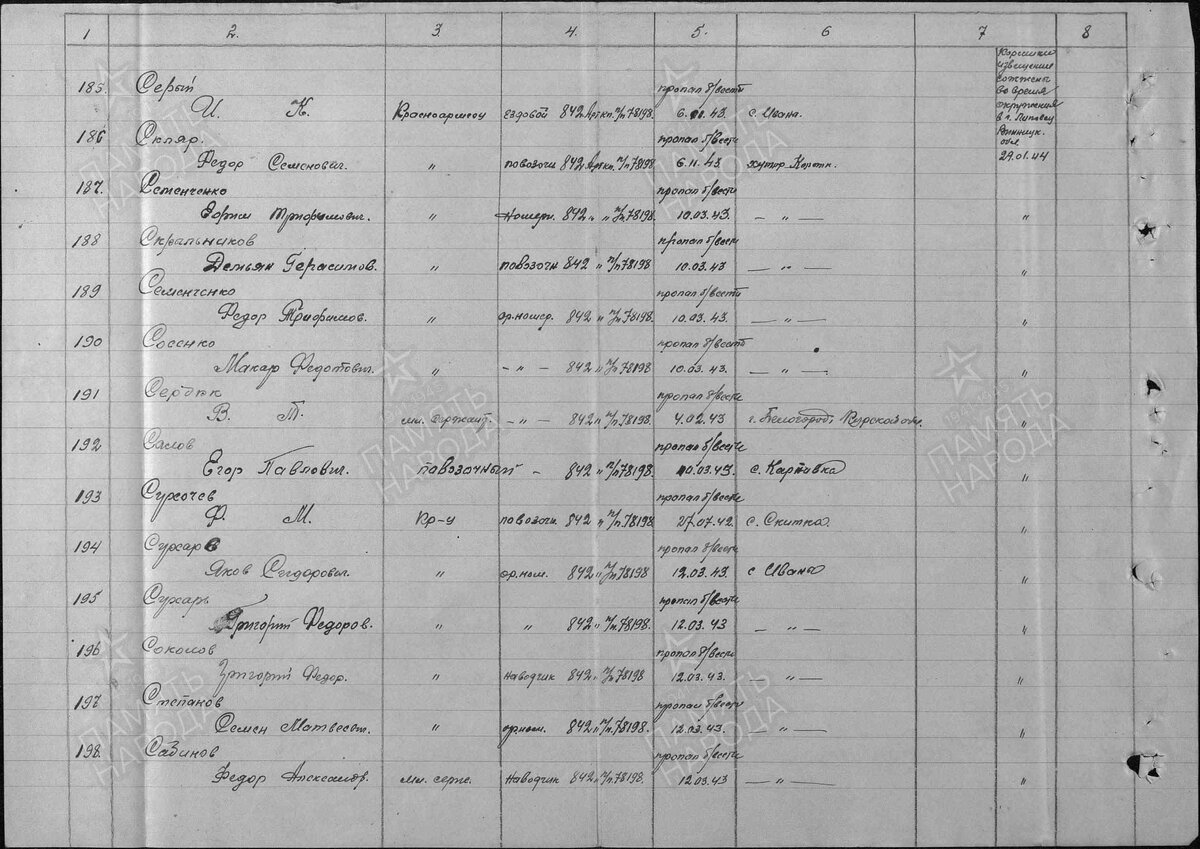 1 2. 3. 4. 5. 6 7 8
Корешки
извещения
сожжены
во время
окружения
в г. Липовец
Винницк.
обл
29.01.44
185. Серый пропал б/вести
И. К. Красноармеец ездовой 842 Арт кп. п/п 78198. 6.11.43. с. Ивана.
186 Скляр. пропал б/вести
Федор Семенович. " повозочн 842 Арт кп. п/п 78198. 6.11.43 хутор
187. Семенченко пропал б/вести
Ефрем Трифонович. " Номерн. 842 " " п/п 78198. 10.03.43. — " — "
188 Скрыльников пропал б/вести
Демьян Герасимов. " повозочн 842 " п/п 78198. 10.03.43 — " — "
189 Семенченко пропал б/вести
Федор " ор. номер. 842 " п/п 78198. 10.03.43. — " — "
190 Сосенко пропал б/вести
Макар Федотович. " – " – 842 " п/п 78198 10.03.43. — " — "
191 Сердюк пропал б/вести
В. М. мл. сержант. – " – 842 " п/п 78198. 4.02.43 г. Белогород, Курской обл. "
192 Сялов пропал б/вести
Егор Павлович. повозочный – 842 " п/п 78198. 10.03.43. с. "
193 Сухочев пропал б/вести
Ф. М. Кр-ц повозочн. 842 " п/п 78198 27.07.42 с. Скитка. "
194 Сухарев пропал б/вести
Яков Сидорович. " ор. ном. 842 " п/п 78198 12.03.43. с Ивана "
195 Сухарь пропал б/вести
Григорий Федоров. " " 842 " п/п 78198. 12.03.43 — " — "
196 Соколов пропал б/вести
Григорий Федор. " наводчик 842 " п/п 78198 12.03.43. — " — "
197 Степанов пропал б/вести
Семен Матвеевич. " ор. ном. 842 " п/п 78198. 12.03.43 — " — "
198. Сабинов пропал б/вести
Федор Александр. мл. серж. Наводчик 842 " п/п 78198. 12.03.43 — " — "
ПАМЯТЬ НАРОДА